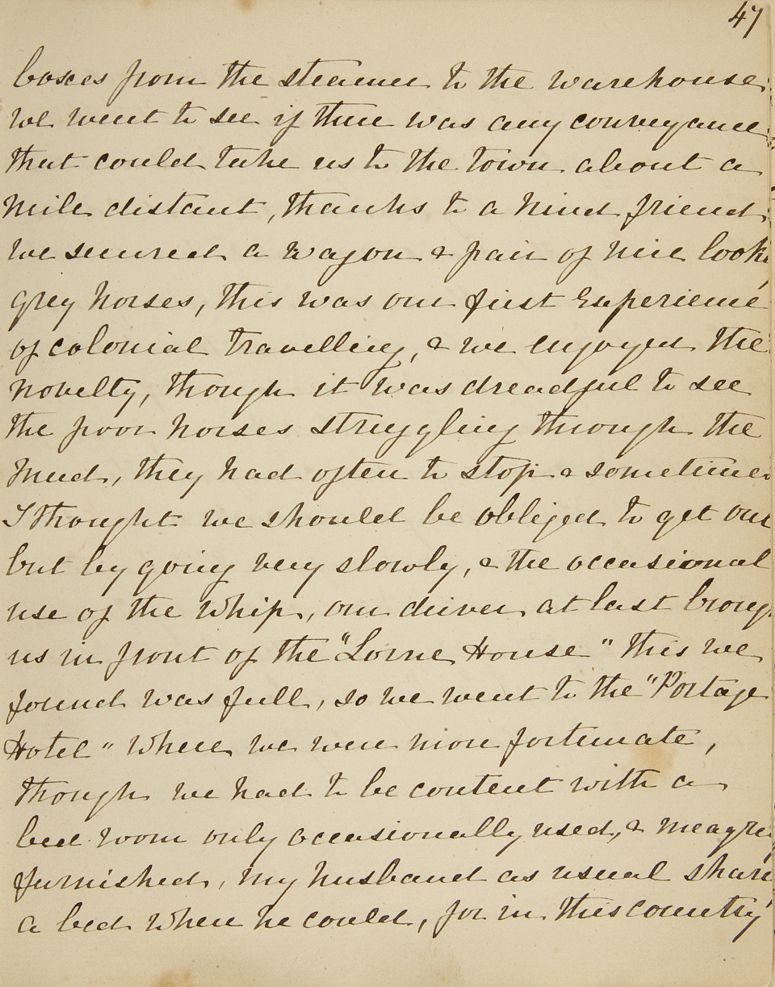 47
boxes from the steamer to the warehouse,
we went to see if there was any conveyance
that could take us to the town about a
mile distant, thanks to a kind friend
we secured a wagon & pair of nice look
grey horses, this was our first experience
of colonial travelling, & we enjoyed the
novelty, though it was dreadful to see
the poor horses struggling through the
mud, they had often to stop & sometimes
I thought we should be obliged to get out
but by going very slowly, & the occasional
use of the whip, our driver at last brough
us in front of the "Lorne House" this we
found was full, so we went to the "Portage
Hotel" where we were more fortunate,
though we had to be content with a
bed room only occasionally used, & meagre
furnished, my husband as usual share
a bed where he could, for in this country